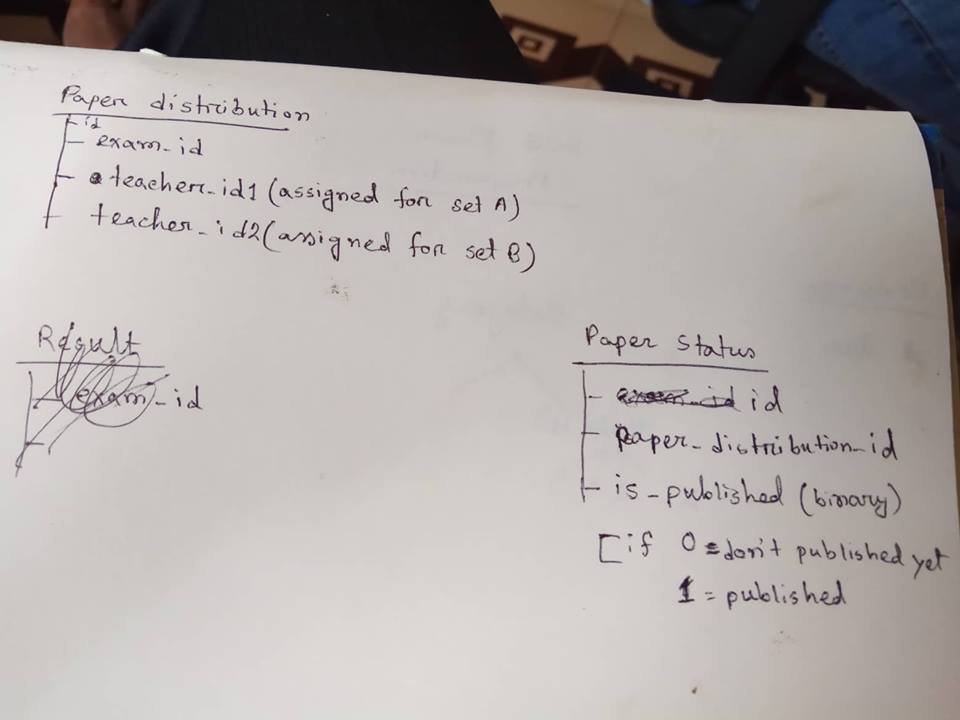 Paper distribution
id
exam_id
teacher_id1 (assigned for set A)
teacher_id2 (assigned for set B)
Result
exam_id
Paper Status
id
paper_distribution_id
is_published (binary)
[if 0 = don't published yet
1 = published